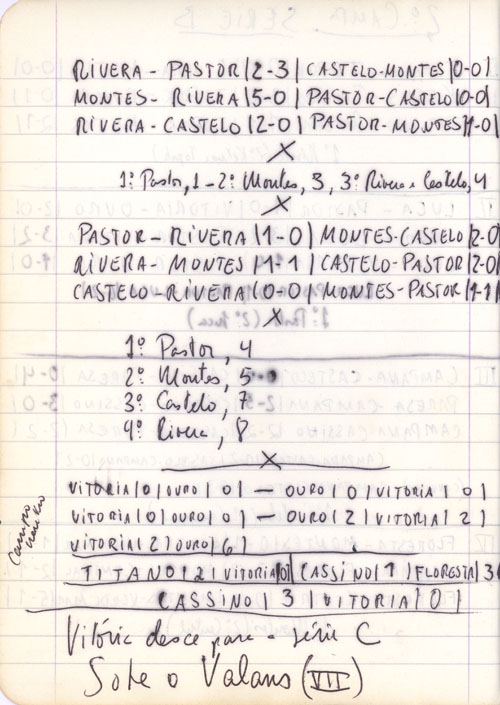 RIVERA - PASTOR | 2-3 | CASTELO-MONTES | 0-0 |
MONTES - RIVERA | 5-0 | PASTOR-CASTELO | 0-0 |
RIVERA - CASTELO | 2-0 | PASTOR-MONTES | 1-0 |
X
1º Pastor, 1 - 2º Montes, 3, 3º Rivera e Castelo, 4
X
PASTOR - RIVERA | 1-0 | MONTES-CASTELO | 2-0
RIVERA - MONTES | 1-1 | CASTELO-PASTOR | 2-0 |
CASTELO-RIVERA | 0-0 | MONTES-PASTOR | 1-1 |
X
1º Pastor, 4
2º Montes, 5
3º Castelo, 7
4º Rivera, 8
X
VITORIA | 0 | OURO | 0 | — OURO | 0 | VITORIA | 0 |
VITORIA | 0 | OURO | 0 | — OURO | 2 | VITORIA | 2 |
VITORIA | 2 | OURO | 6 |
Campo
TITANO | 2 | VITORIA | 0 | CASSINO | 1 | FLORESTA | 3
CASSINO | 3 | VITORIA | 0 |
Vitória desce para a série C
Sobe o Valans (VII)